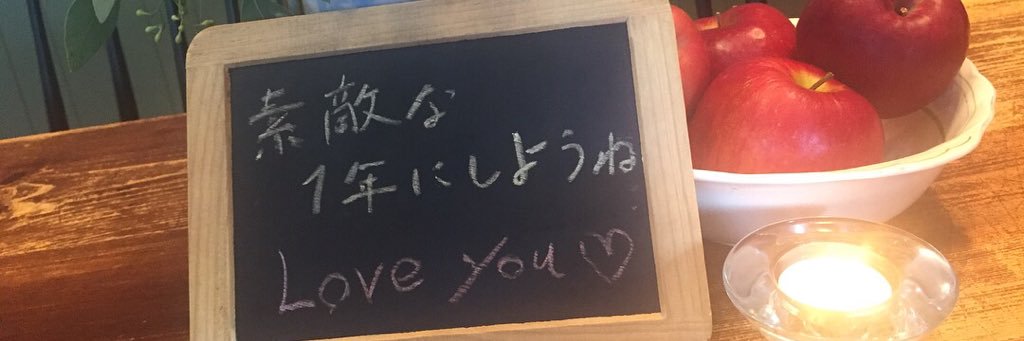 素敵な
1年にしようね
Love You♡